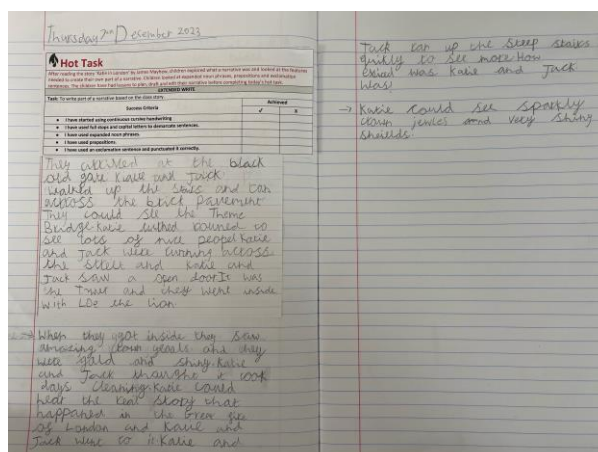 Thursday 7th December 2023
Hot Task
After reading the story 'Katie in London' by James Mayhew, children explored what a narrative was and looked at the features
needed to create their own part of a narrative. Children looked at expanded noun phrases, prepositions and exclamation
sentences. The children have had lessons to plan, draft and edit their narrative before completing today's hot task.
EXTENDED WRITING
Task: To write part of a narrative based on the class story.
Success Criteria
Achieved
✓ x
I have started using continuous cursive handwriting
I have used full stops and capital letters to demarcate sentences.
I have used expanded noun phrases.
I have used prepositions.
I have used an exclamation sentence and punctuated it correctly.
They at the black
old gate Katie and Jack
walked up the stairs and ran
across the black pavement
They could see the Theme
Bridge. Katie to
see lots of nice peopel Katie
and Jack were running across
the street and Katie and
Jack saw a open door It was
the Tower and they went inside
with the lion
When they got inside they saw
amazing and they
were gold and shiny. Katie
and Jack thought it took
days cleaning. Katie
hear the Real story that
happaned in the Great fire
of London and Katie and
Jack went to it. Katie and
Jack ran up the steep stairs
to see more. How
was Katie and Jack
was!
Katie could see sparkly
crown and very shiny
shields.